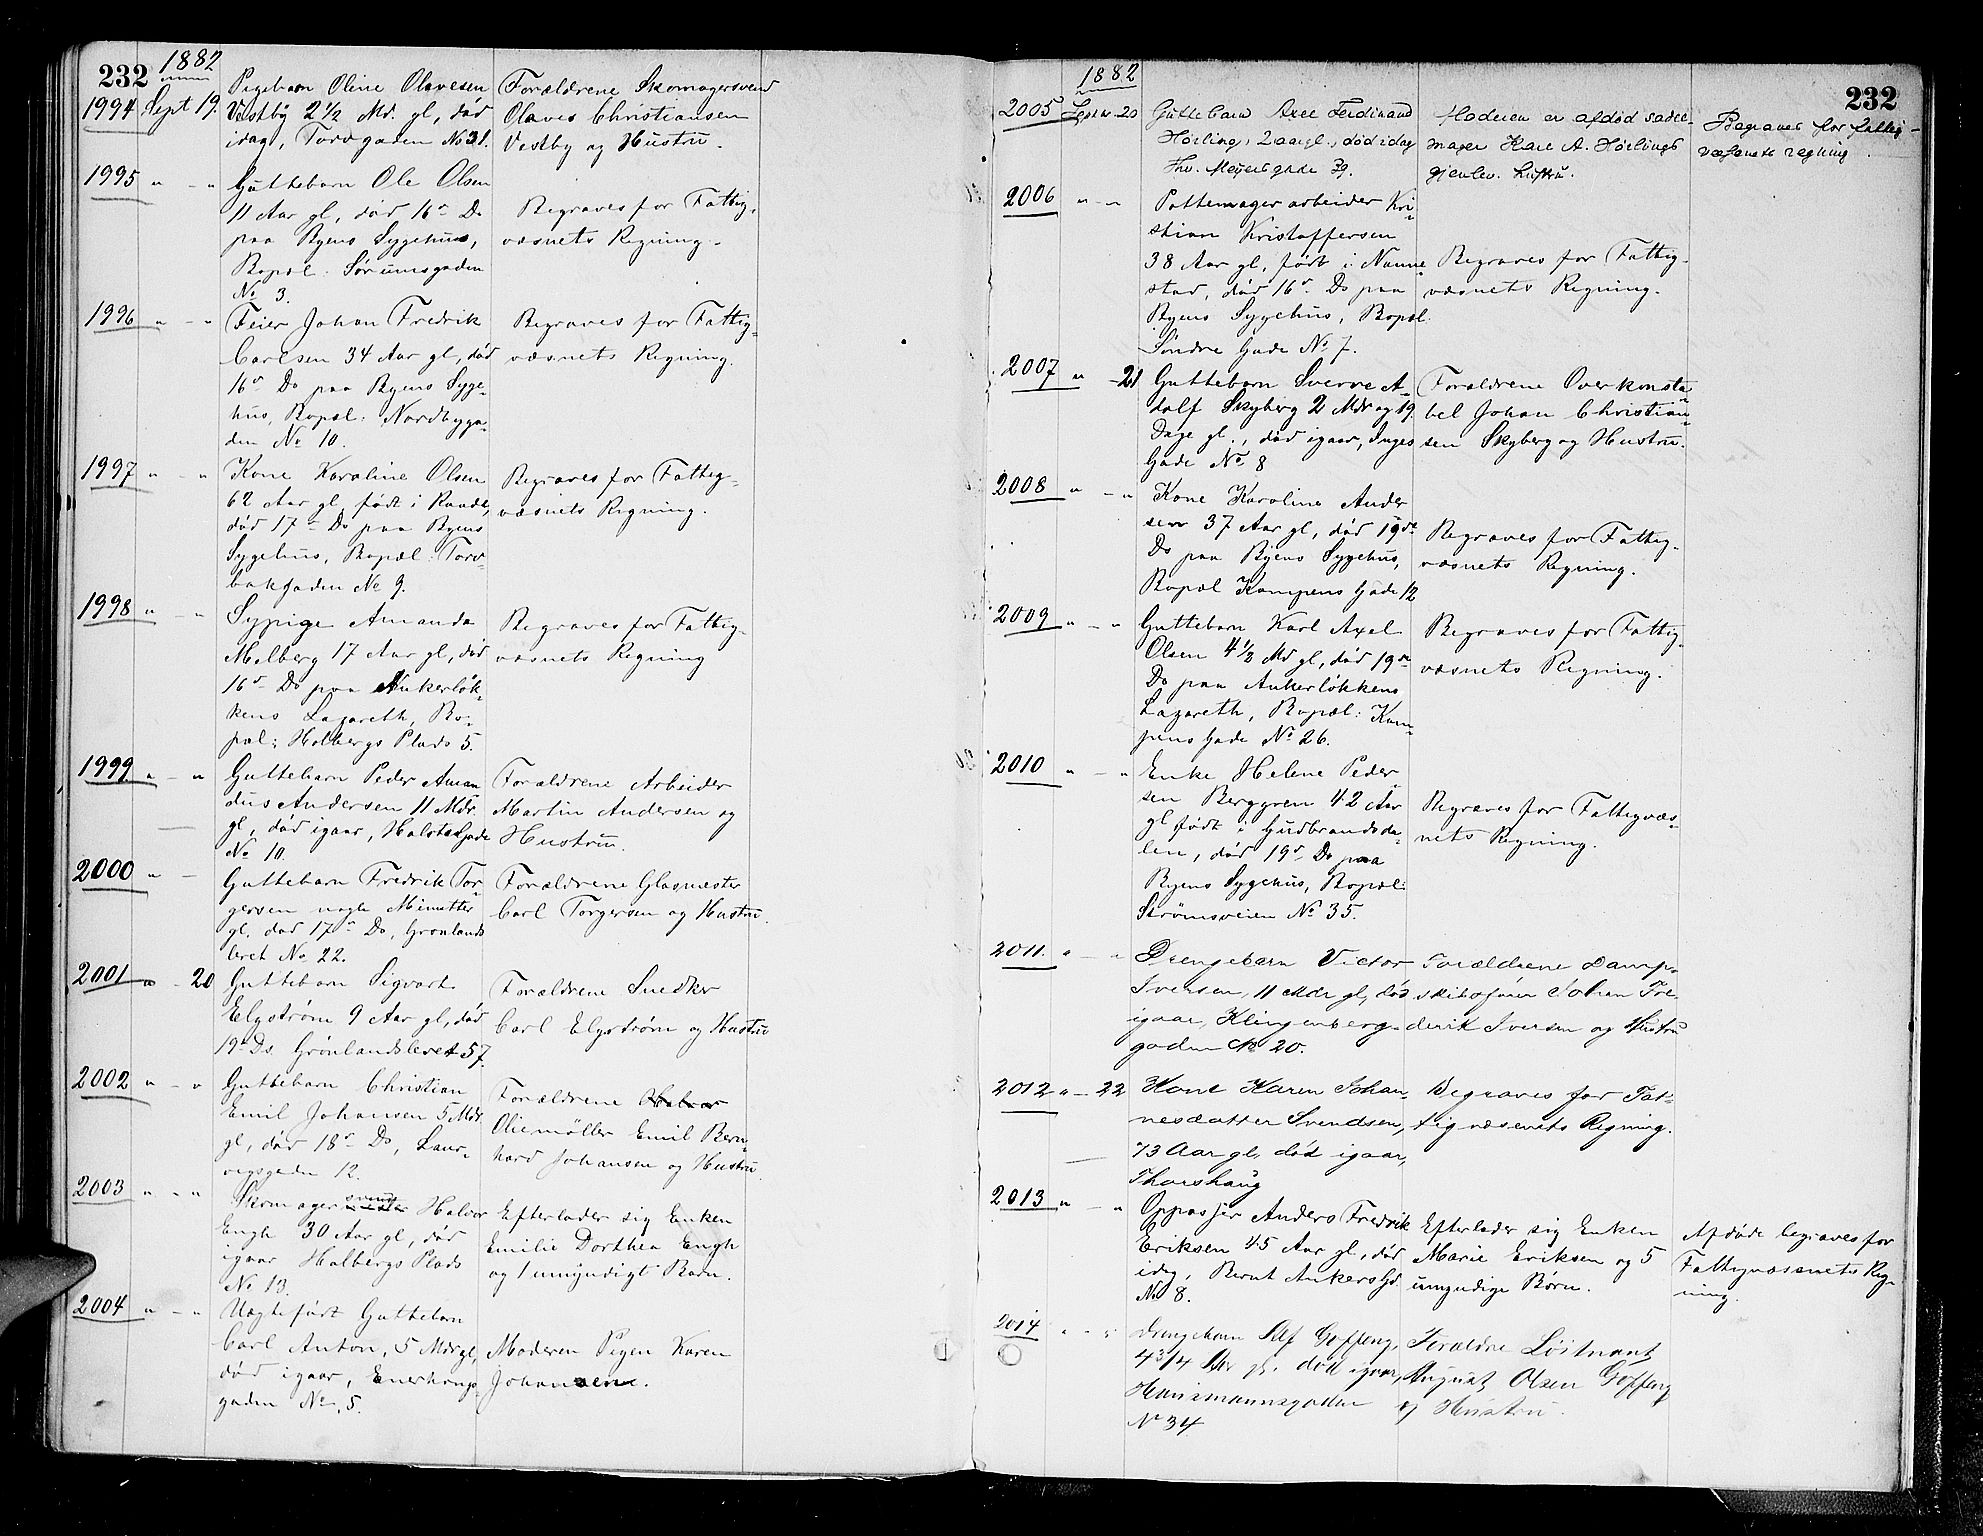 232
1882
1994 Sept 19. Pigebarn Oline Olavesen
Vestby 2 1/2 Md. gl, død
idag, Torvgaden No 31.
Forældrene Skomagersvend
Olaves Christiansen
Vestby og Hustru.
1995 " - " Guttebarn Ole Olsen
11 Aar gl, død 16de Ds
paa Byens Sygehus,
Bopæl: Sörumsgaden
No 3.
Begraves for Fattig-
væsnets Regning.
1996 " - " Feier Johan Fredrik
Carlsen 34 Aar gl, død
16de Ds paa Byens Syge-
hus, Bopæl: Nordbyga-
den No 10.
Begraves for Fattig-
væsnets Regning.
1997 " - " Kone Karoline Olsen
62 Aar gl, født i Raade,
död 17de Ds paa Byens
Sygehus, Bopæl: Torv-
bakgaden No 9.
Begraves for Fattig-
væsnets Regning.
1998 " - " Sypige Amanda
Melberg 17 Aar gl, död
16de Ds paa Ankerløk-
kens Lazareth, Bo-
pæl: Holbergs Plads 5.
Begraves for Fattig-
væsnets Regning
1999 " - " Guttebarn Peder Aman
dus Andersen 11 Mdr.
gl, död igaar, Halsta Gade
No 10.
Forældrene Arbeider
Martin Andersen og
Hustru.
2000 " - Guttebarn Fredrik Tor-
gersen nogle Minutter
gl. død 17de Ds, Grønlands
leret No 22.
Forældrene Glasmester
Carl Torgersen og Hustru.
2001 " - 20 Guttebarn Sigvart
Elgström 9 Aar gl, död
19de Ds. Grönlandsleret 57.
Forældrene Snedker
Carl Elgström og Hustru
2002 " - " Guttebarn Christian
Emil Johansen 5 Mdr.
gl, död 18de Ds, Laur-
vigsgaden 12.
Forældrene
Oliemöller Emil Bern-
hard Johansen og Hustru.
2003 " - " Skomagersvend Halvor
Engh 30 Aar gl, död
igaar Holbergs Plads
No 13.
Efterlader sig Enken
Emilie Dorthea Engh
og 1 umyndigt Barn.
2004 " - " Uægtefödt Guttebarn
Carl Anton, 5 Mdr gl,
död igaar, Enerhaugs-
gaden No. 5.
Moderen Pigen Karen
Johansen.
232
1882
2005 Septr 20 Guttebarn Axel Ferdinand
Hörling, 2 aar gl., död idag
Thv. Meyersgade 39.
Moderen er afdöd sadel-
mager Karl A. Hörlings
gjenlev. hustru.
Begraves for fattig-
væsenets regning.
2006 " - " Pottemagerarbeider Kri-
stian Kristoffersen
38 Aar gl, født i Nanne-
stad, död 16de Ds paa
Byens Sygehus, Bopæl
Söndre Gade No 7.
Begraves for Fattig-
væsnets Regning.
2007 " - 21 Guttebarn Sverre A-
dolf Skyberg 2 Mdr og 19
Dage gl., död igaar, Inges
Gade No 8
Forældrene Overkonsta-
bel Johan Christian-
sen Skyberg og Hustru.
2008 " - " Kone Karoline Ander
sen 37 Aar gl, död 19de
Ds paa Byens Sygehus,
Bopæl Kampens Gade 12
Begraves for Fattig-
væsnets Regning.
2009 " - " Guttebarn Karl Axel
Olsen 4 1/2 Md gl, død 19de
Ds paa Ankerlökkens
Lazareth, Bopæl: Kam-
pens Gade No 26.
Begraves for Fattig-
væsnets Regning.
2010 " - " Enke Helene Peder
sen Berggren 42 Aar
gl født i Gudbrandsda-
len, död 19de Ds paa
Byens Sygehus, Bopæl:
Strömsveien No 35.
Begraves for Fattigvæs-
nets Regning.
2011. " - " Drengebarn Victor
Iversen, 11 Mdr gl, död
igaar, Klingenberg-
gaden No 20.
Forældrene Damp-
skibsförer Johan Fre-
derik Iversen og Hustru
2012 " - 22 Kone Karen Johan-
nesdatter Svendsen,
73 Aar gl, död igaar,
Thorshaug
Begraves for Fat-
tigvæsenets Regning.
2013 " - " Oppasser Anders Fredrik
Eriksen 45 Aar gl, död
idag, Bernt Ankers Gd.
No 8.
Efterlader sig Enken
Marie Eriksen og 5
umyndige Börn.
Afdöde begraves for
Fattigvæsenets Reg-
ning.
2014 " - " Drengebarn Alf Goffeng,
4 3/4 Aar gl. död igaar,
Hausmannsgaden
No 34
Forældre Löitnant
August Olsen Goffeng
og Hustru.